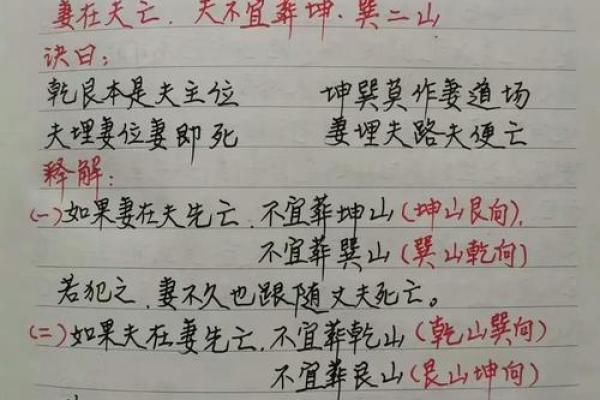 妻在夫亡,夫不宜葬坤、巽二山
诀曰:
乾艮本是夫主位 坤巽莫作妻道场
夫埋妻位妻即死 妻埋夫路夫便亡
释解:
(一)如果妻在夫先亡,不宜葬坤山(坤山艮向),
不宜葬巽山(巽山乾向)
若犯之,妻不久也跟随丈夫死亡。
(二)如果夫在妻先亡,不宜葬乾山(乾山巽向)
不宜葬艮山(艮山坤向)